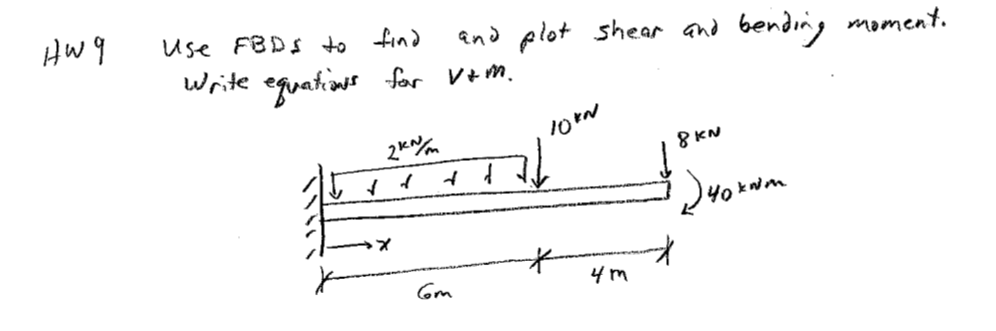 HW9 Use FBDs to find and plot shear and bending moment.
Write equations for V+m.
10 kN
8 kN
2 kN/m
40 kNm
x
6m
4m